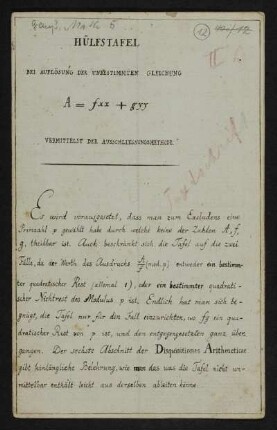 HÜLFSTAFEL
BEI AUFLÖSUNG DER UNBESTIMMTEN GLEICHUNG
A = fxx + gyy
VERMITTELST DER AUSSCHLIESSUNGSMETHODE.
Es wird vorausgesetzt, dass man zum Excludens eine
Primzahl p gewählt habe durch welche keine der Zahlen A, f,
g, theilbar ist. Auch beschränkt sich die Tafel auf die zwei
Fälle, da der Werth des Ausdrucks (mod. p) entweder ein bestimm-
ter quadratischer Rest (allemal 1), oder ein bestimmter quadrati-
scher Nichtrest des Modulus p ist. Endlich hat man sich be-
gnügt, die Tafel nur für den Fall einzurichten, wo fg ein qua-
dratischer Rest von p ist, und den entgegengesetzten ganz über-
gangen. Der sechste Abschnitt der Disquisitiones Arithmeticae
gibt hinlängliche Belehrung, wie man das was die Tafel nicht un-
mittelbar enthält leicht aus derselben ableiten könne.